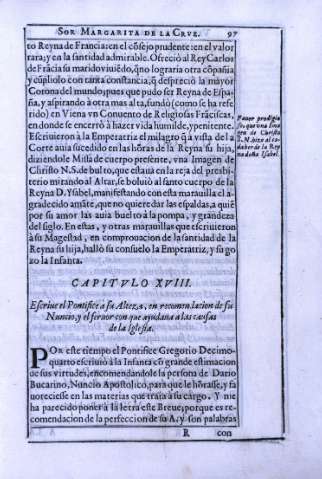 SOR MARGARITA DE LA CRVZ. 97
to Reyna de Francia: en el cõsejo prudente: en el valor
rara; y en la santidad admirable. Ofreció al Rey Carlos
de Frãcia su marido viuẽdo, q̃ no lograria otra cõpañia
y cũpliolo con tanta constancia, q̃ despreciò la mayor
Corona del mundo; pues que pudo ser Reyna de Espa-
ña, y aspirando à otra mas alta, fundò (como se ha refe-
rido) en Viena vn Conuento de Religiosas Frãciscas,
en donde se encerrò à hazer vida humilde, y penitente.
Escriuieron à la Emperatriz el milagro q̃ a vista de la
Corte auia sucedido en las hõras de la Reyna su hija,
diziendole Missa de cuerpo presente, vna Imagen de
Christo N.S. de bulto, que estaua en la reja del presbi-
terio mirando al Altar, se boluiò al santo cuerpo de la
Reyna D. Ysabel, manifestando con esta marauilla el a-
gradecido amãte, que no quiere dar las espaldas, a quiẽ
por su amor las auia buelto à la pompa, y grandeza
del siglo. En estas, y otras marauillas que escriuieron
à su Magestad, en comprouacion de la santidad de la
Reyna su hija, hallò su consuelo la Emperatriz, y su go
zo la Infanta.
Fauor prodigio
so, que vna Ima
gen de Christo
S. N. hizo al ca
dauer de la Rey
na doña Isabel.
CAPITVLO XVIII.
Escriue el Pontifice a su Alteza, en recomendacion de su
Nuncio, y el feruor con que ayudaua a las causas
de la Iglesia.
POR este tiempo el Pontifice Gregorio Decimo-
quarto escriuiò à la Infanta cõ grande estimacion
de sus virtudes, encomendandole la persona de Dario
Bucarino, Nuncio Apostolico, para que le hõrasse, y fa
uoreciesse en las materias que traia à su cargo. Y me
ha parecido poner à la letra este Breue, porque es re-
comendacion de la perfeccion de su A. y son palabras
R con